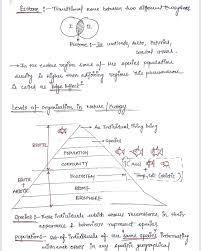 Ecotone :- Transitional zone between two different Ecosystems
I II
Ecotone :- Ex wetlands,
→ In the ecotone region some of the species population
density is higher than adjoining regions this phenomenon
is called as Edge Effect
Levels of organisation in nature / Ecology
→ An Individual living being
SPECIES
POPULATION
COMMUNITY
ECOSYSTEM
BIOME
BIOSPHERE
BIOTIC
Species :- Those Individuals which shows resemblance in their
appearance & behaviour represent species.
Population :- Set of Individuals of the same species interacting
with each other in any specific geographical